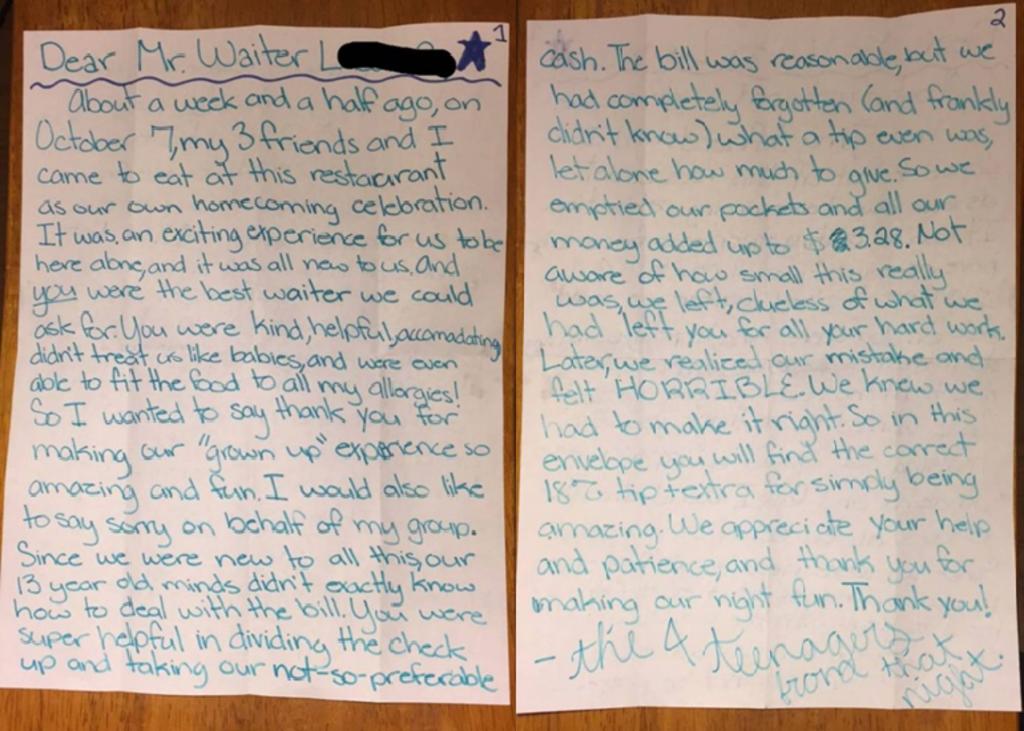 1
Dear Mr. Waiter L
About a week and a half ago, on
October 7, my 3 friends and I
came to eat at this restaurant
as our own homecoming celebration.
It was an exciting experience for us to be
here alone, and it was all new to us. And
you were the best waiter we could
ask for. You were kind, helpful, accomadating
didn't treat us like babies, and were even
able to fit the food to all my allergies!
So I wanted to say thank you for
making our "grown up" experence so
amazing and fun. I would also like
to say sorry on behalf of my group.
Since we were new to all this, our
13 year old minds didn't exactly know
how to deal with the bill. You were
super helpful in dividing the check
up and taking our not-so-preferable
2
cash. The bill was reasonable, but we
had completely forgotten (and frankly
didn't know) what a tip even was,
let alone how much to give. So we
emptied our pockets and all our
money added up to $3.28. Not
aware of how small this really
was, we left, clueless of what we
had left you for all your hard work.
Later, we realized our mistake and
felt HORRIBLE. We knew we
had to make it right. So in this
envelope you will find the correct
18% tip + extra for simply being
amazing. We appreciate your help
and patience, and thank you for
making our night fun. Thank you!
- the 4 teenagers
from that
night.